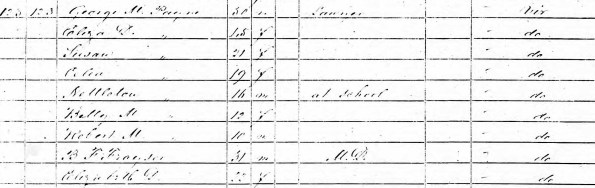 123 123 George M. Payne 50 m Farmer Vir
Eliza D. " f " do
Susan " 21 f " do
19 f " do
" 16 m at School " do
Betty M " 12 f " do
Robert M " 10 m " do
B F 31 m M.D. " do
Elizabeth D. 22 f " do